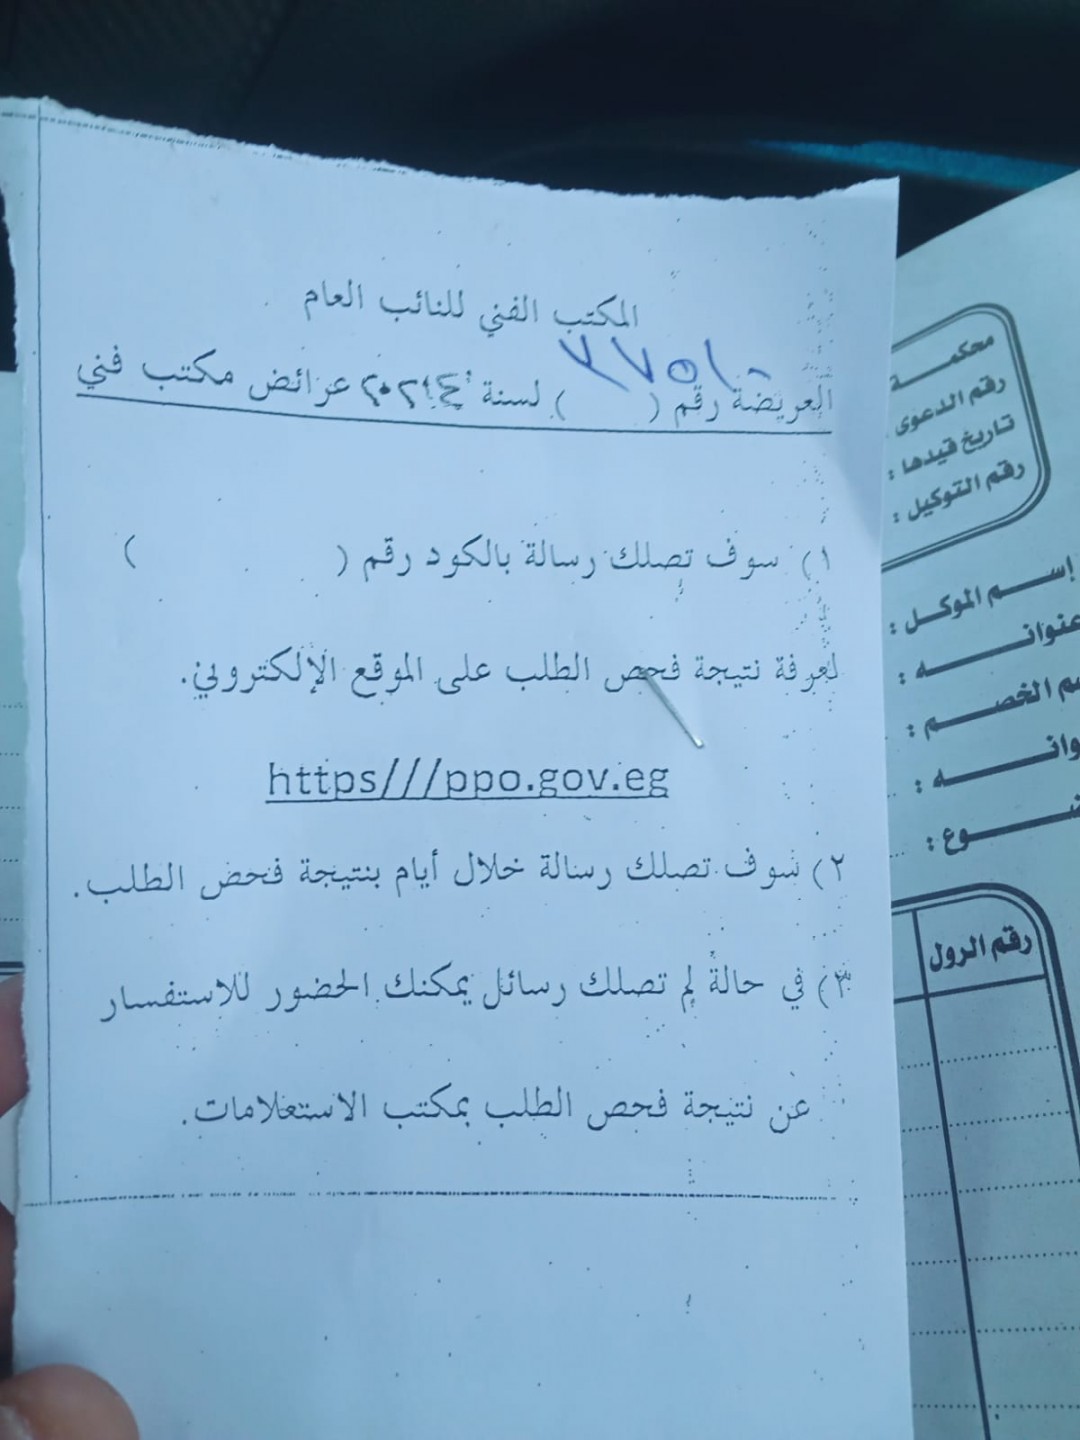 المكتب الفني للنائب العام
العريضة رقم ( ) لسنة ٢٠٢٤ عرائض مكتب فني
١) سوف تصلك رسالة بالكود رقم ( )
لمعرفة نتيجة فحص الطلب على الموقع الإلكتروني.
https///ppo.gov.eg
٢) سوف تصلك رسالة خلال أيام بنتيجة فحص الطلب.
٣) في حالة لم تصلك رسائل يمكنك الحضور للاستفسار
عن نتيجة فحص الطلب بمكتب الاستعلامات.
محكمـــة
رقم الدعوى
تاريخ قيدها :
رقم التوكيل :
إســم الموكـل :
عنوانـــه :
ـم الخصــم :
ـوانـــه :
ـوع :
رقم الرول